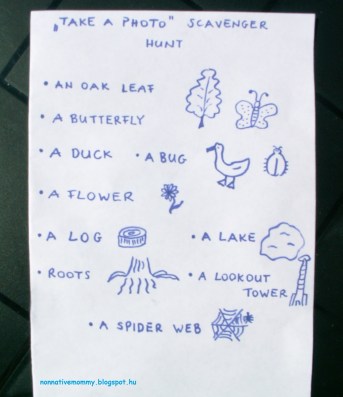 „TAKE A PHOTO" SCAVENGER
HUNT
• AN OAK LEAF
• A BUTTERFLY
• A DUCK • A BUG
• A FLOWER
• A LOG • A LAKE
• ROOTS • A LOOKOUT
TOWER
• A SPIDER WEB
nonnativemommy.blogspot.hu